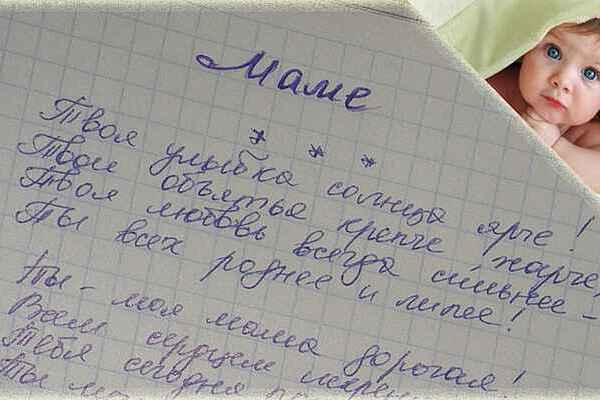 Маме
* * *
Твоя улыбка солнца ярче!
Твои объятья крепче, жарче,
Твоя любовь всегда сильнее –
Ты всех роднее и милее!
Ты - моя мама дорогая!
Всем сердцем
Тебя сегодня
Ты